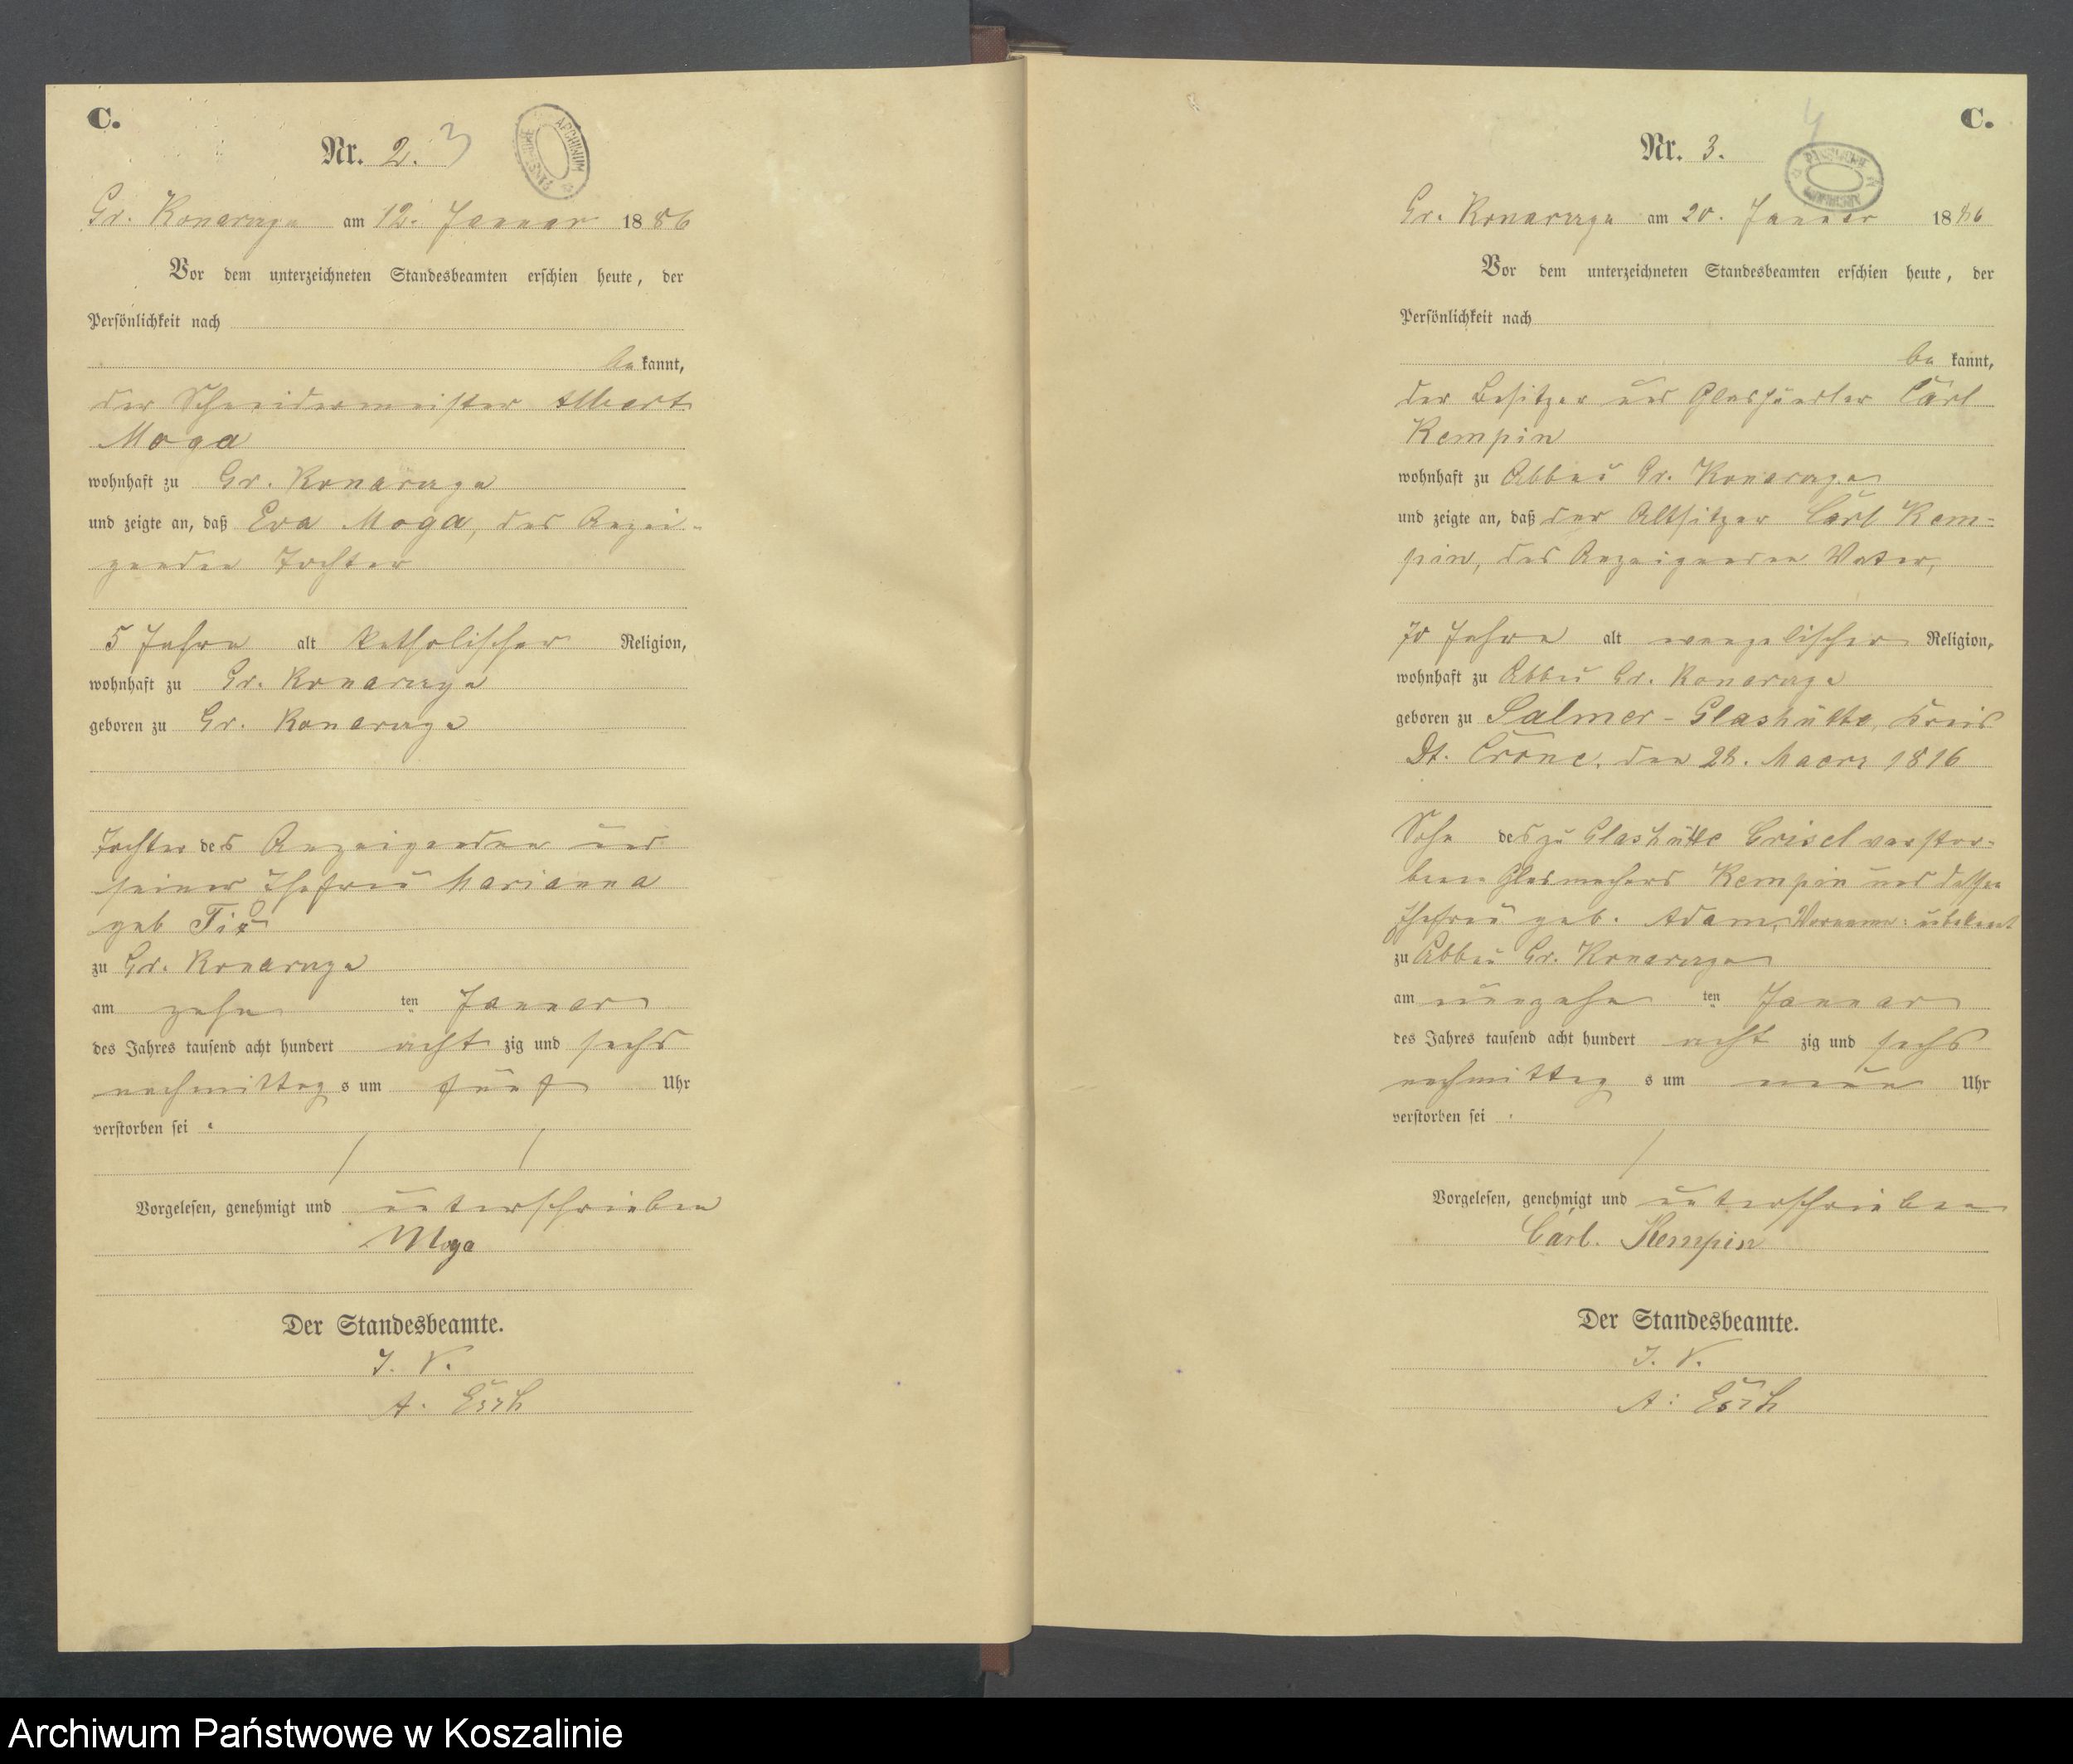 C.
Nr. 2. 3
ARCHIWUM PAŃSTWOWE
Gr. Konarczyn am 12. Januar 1886
Vor dem unterzeichneten Standesbeamten erschien heute, der
Persönlichkeit nach
bekannt,
der Schneidermeister Albert
Moga
wohnhaft zu Gr. Konarczyn
und zeigte an, daß Eva Moga, des Anzei-
genden Tochter
5 Jahre alt katholischer Religion,
wohnhaft zu Gr. Konarczyn
geboren zu Gr. Konarczyn
Tochter des Anzeigenden und
seiner Ehefrau Marianna
geb
zu Gr. Konarczyn
am zehn ten Januar
des Jahres tausend acht hundert acht zig und sechs
nachmittags um fünf Uhr
verstorben sei
Vorgelesen, genehmigt und unterschrieben
Moga
Der Standesbeamte.
J. V.
A.
C.
Nr. 3. 4
ARCHIWUM PAŃSTWOWE
Gr. Konarczyn am 20. Januar 1886
Vor dem unterzeichneten Standesbeamten erschien heute, der
Persönlichkeit nach
bekannt,
der Besitzer und Glashändler Carl
Kempin
wohnhaft zu Abbau Gr. Konarczyn
und zeigte an, daß der Altsitzer Carl Kem-
pin, des Anzeigenden Vater,
70 Jahre alt evangelischer Religion,
wohnhaft zu Abbau Gr. Konarczyn
geboren zu Salmer-Glashütte, Kreis
Dt. Crone, den 28. Maerz 1816
Sohn des zu Glashütte Grisel verstor-
benen Glasmachers Kempin und dessen
Ehefrau geb. Adam, Vorname: unbekannt
zu Abbau Gr. Konarczyn
am neunzehn ten Januar
des Jahres tausend acht hundert acht zig und sechs
nachmittags um neun Uhr
verstorben sei
Vorgelesen, genehmigt und unterschrieben
Carl. Kempin
Der Standesbeamte.
J. V.
A:
Archiwum Państwowe w Koszalinie